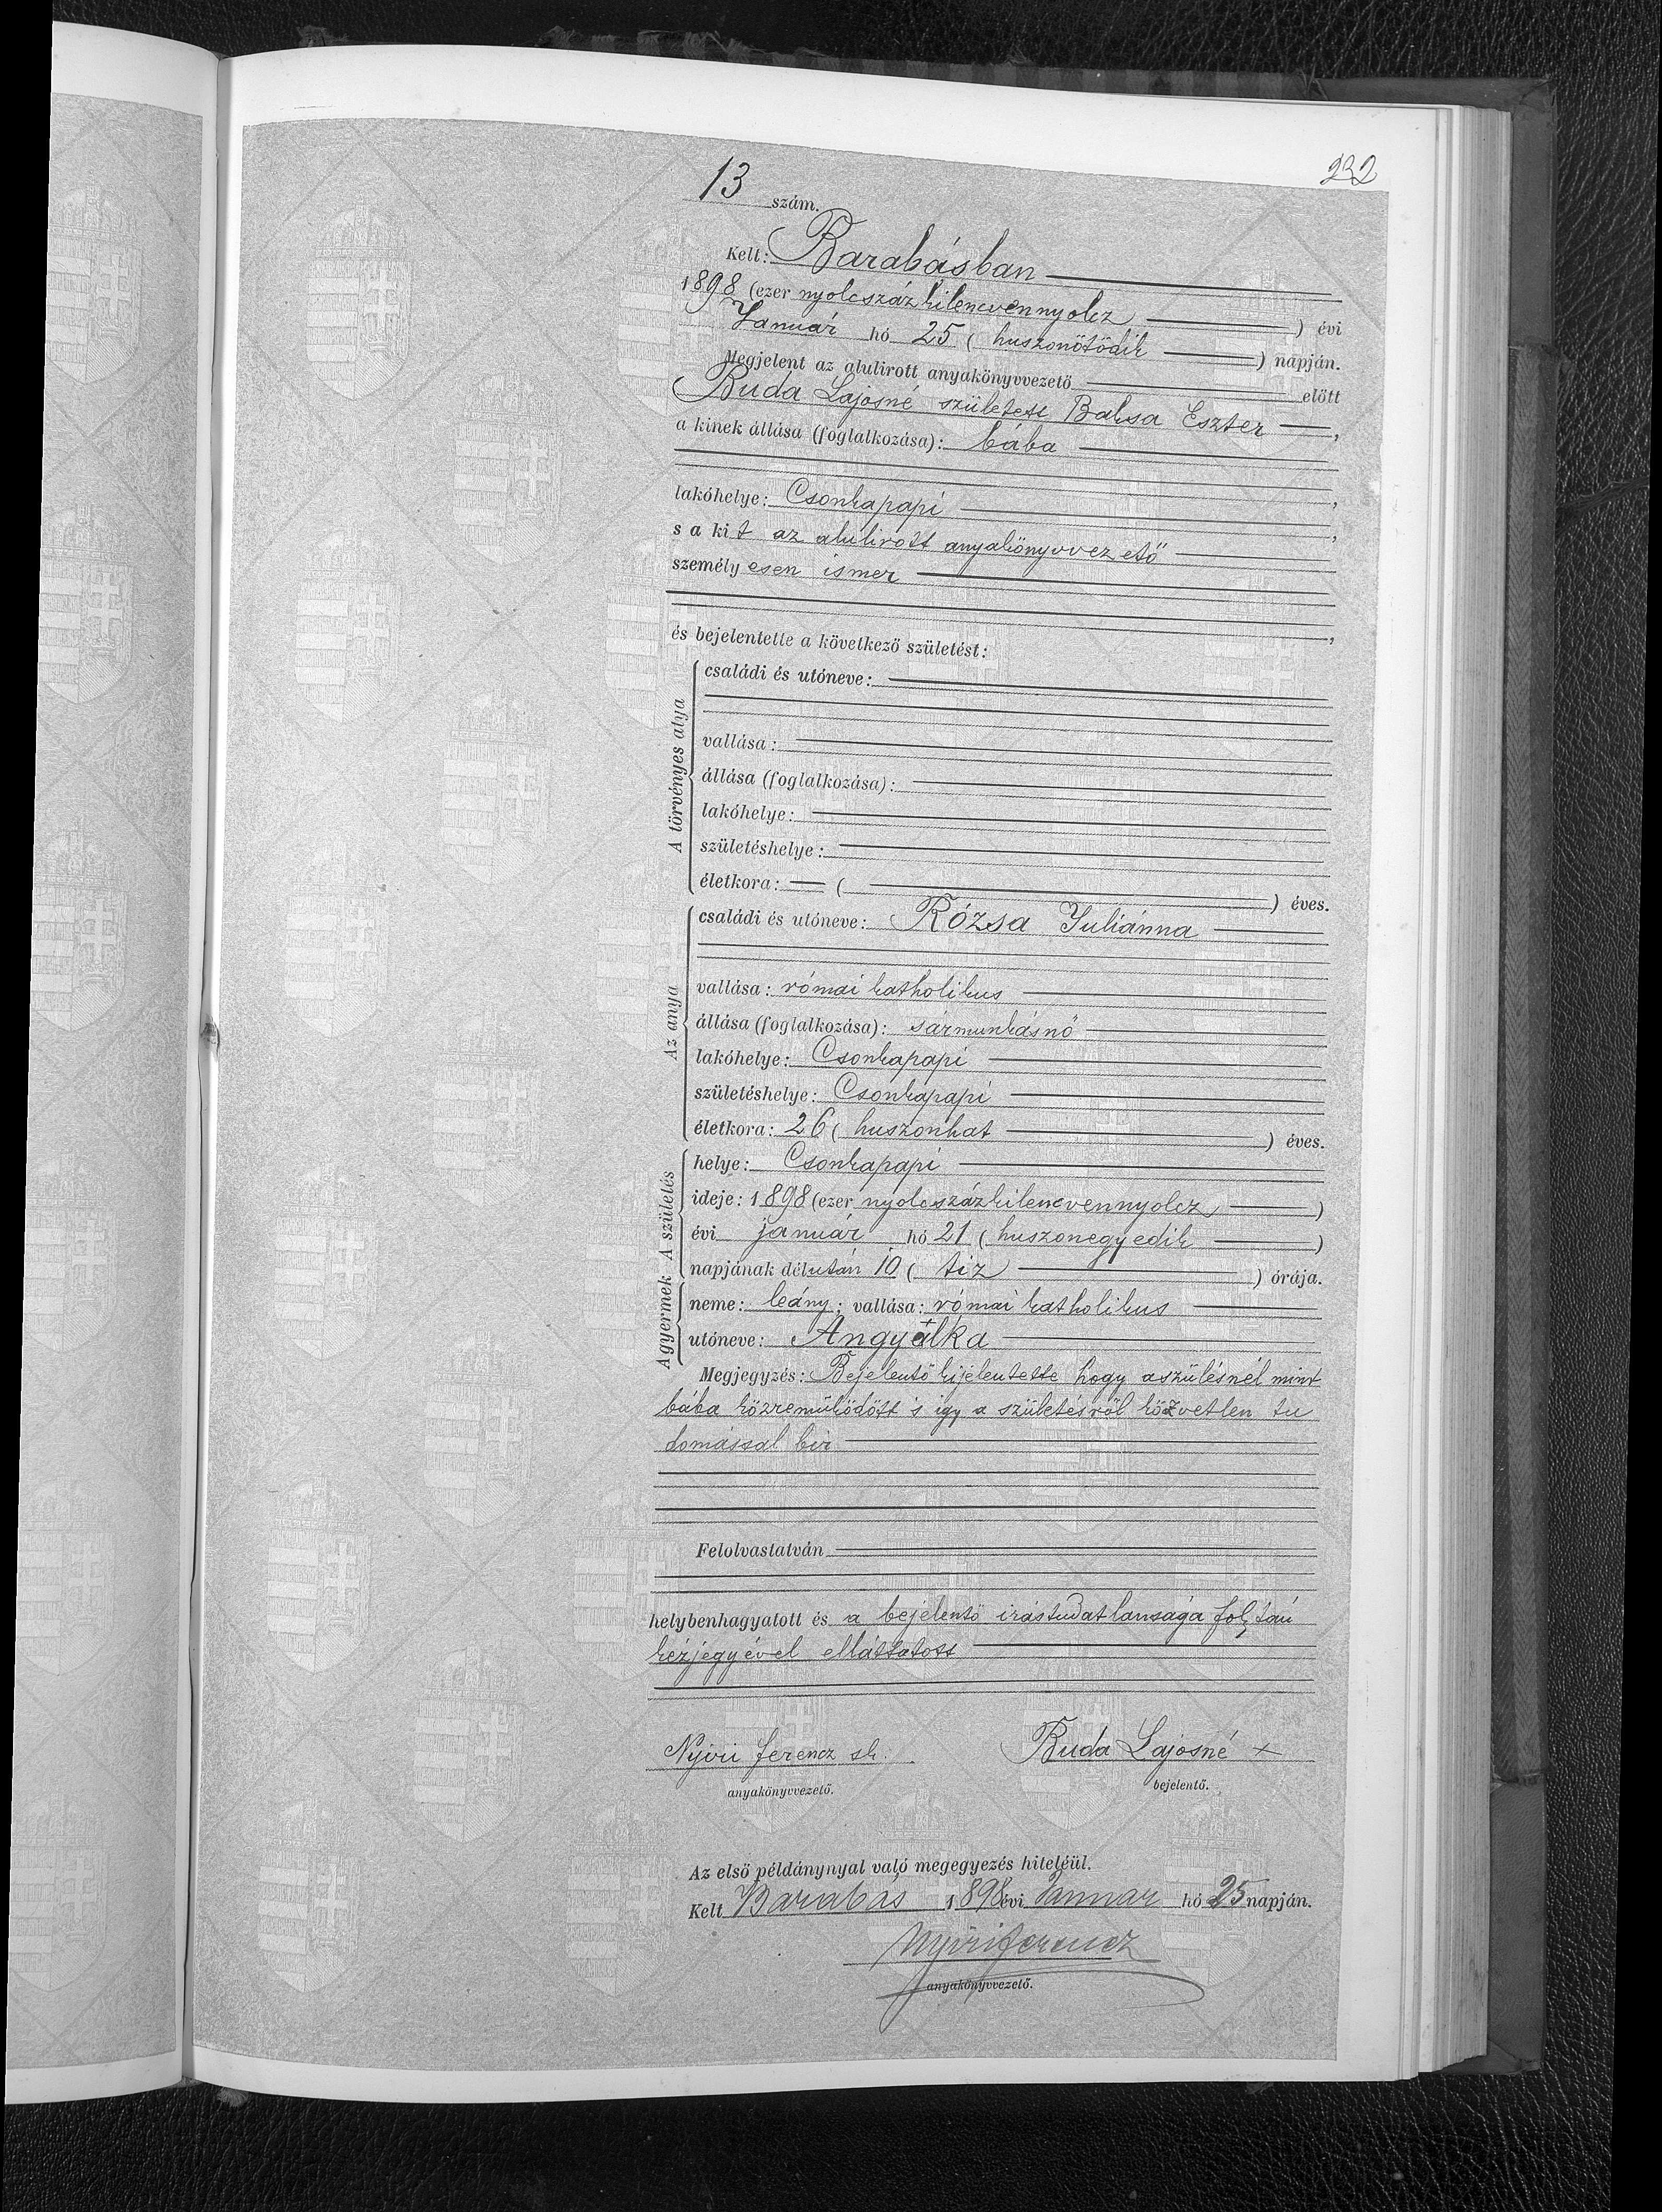 232
13 szám.
Kelt: Barabásban
1898 (ezer nyolcszázkilencvennyolcz) évi
Január hó 25 (huszonötödik) napján.
Megjelent az alulirott anyakönyvvezető előtt
Buda Lajosné született Baksa Eszter,
a kinek állása (foglalkozása): bába
lakóhelye: Csonkapapi,
s a kit az alulirott anyakönyvvezető
személyesen ismer
és bejelentette a következő születést:
A törvényes atya
családi és utóneve:
vallása:
állása (foglalkozása):
lakóhelye:
születéshelye:
életkora: ( ) éves.
Az anya
családi és utóneve: Rózsa Juliánna
vallása: római katholikus
állása (foglalkozása): sármunkásnő
lakóhelye: Csonkapapi
születéshelye: Csonkapapi
életkora: 26 (huszonhat) éves.
A születés
helye: Csonkapapi
ideje: 1898 (ezer nyolcszázkilencvennyolcz)
évi január hó 21 (huszonegyedik)
napjának délután 10 (tiz) órája.
A gyermek
neme: leány; vallása: római katholikus
utóneve: Angyalka
Megjegyzés: Bejelentő kijelentette hogy a szülésnél mint
bába közreműködött s igy a születésről közvetlen tu
domással bir
Felolvastatván
helybenhagyatott és a bejelentő irástudatlansága folytán
kézjegyével elláttatott
Nyiri Ferencz sk. Buda Lajosné x
anyakönyvvezető. bejelentő.
Az első példánynyal való megegyezés hiteléül.
Kelt Barabás 1898 évi Januar hó 25 napján.
Nyiri Ferencz
anyakönyvvezető.